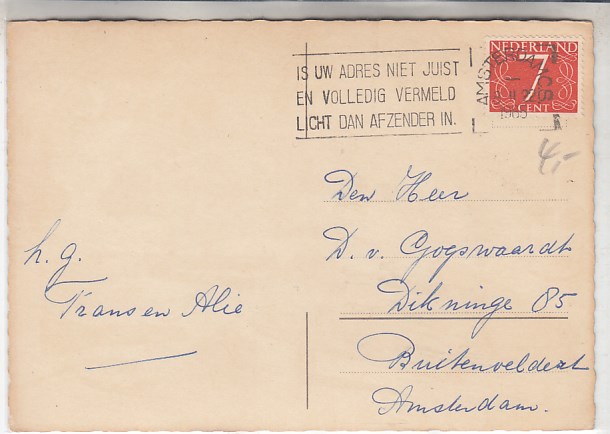 IS UW ADRES NIET JUIST
EN VOLLEDIG VERMELD
LICHT DAN AFZENDER IN.
AMSTERDAM CS
NEDERLAND
7
CENT
4,-
Den Heer
D. v. Gogswaardt
Dikninge 85
Buitenveldert
Amsterdam.
h. g.
Frans en Alie